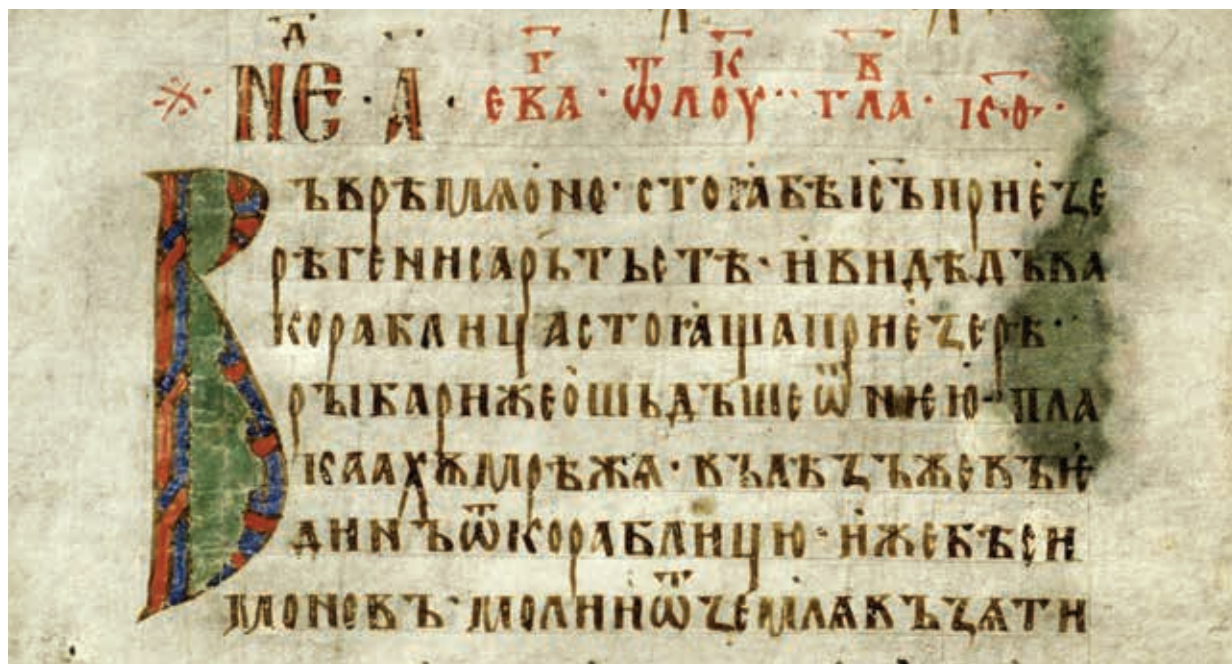 ※ · НЕⷣ · А҃ · ЕВАⷢ҇ · Ѿ ЛОУⷦ҇ · ГЛАⷡ҇ · к҃ѳ ·
Въ врѣмѧ оно · стоꙗ бѣ іс҃ъ при езе
рѣ генисарьтьстѣ · и видѣ дъва
кораблица стоꙗща при езерѣ ··
рыбари же ошьдъше ѿ нѥю · пла
каахѫ мрѣжѧ · вълѣзъ же въ ѥ
динъ ѿ кораблицю · иже бѣ си
моновъ · моли и ѿ землѧ възѧти